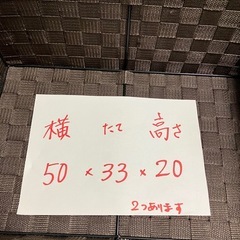 横 たて 高さ
50 × 33 × 20
2つあります